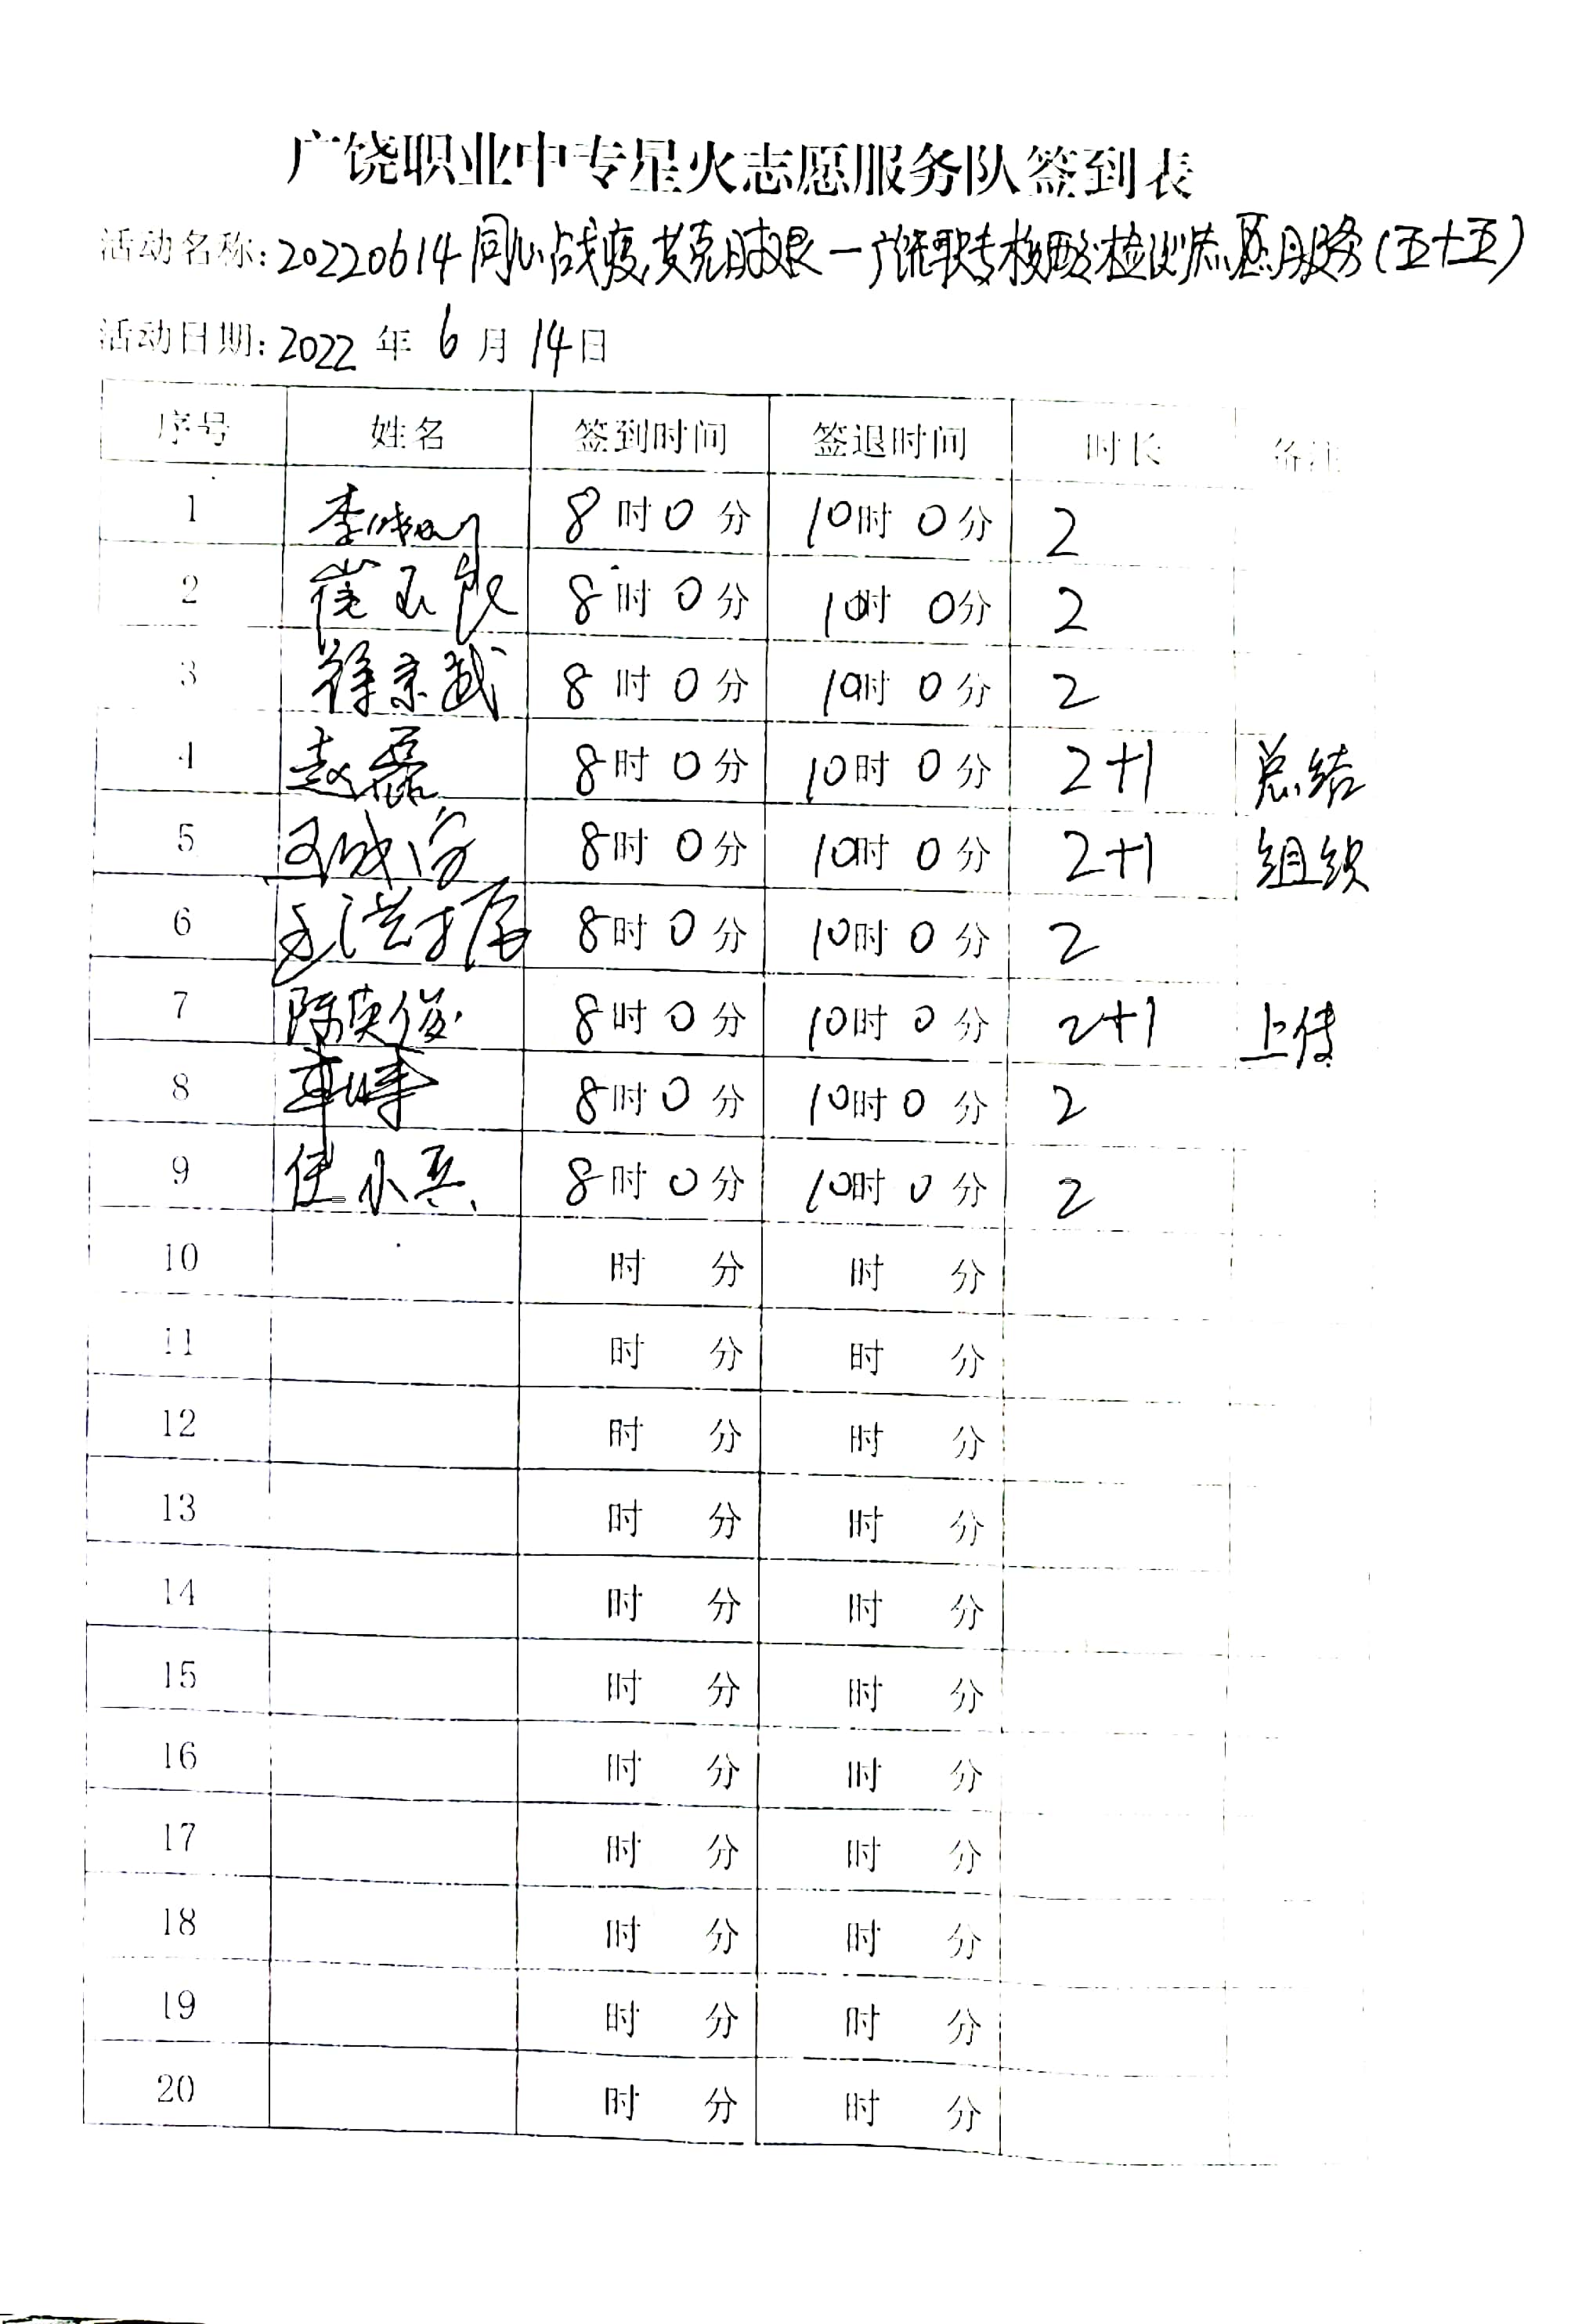 广饶职业中专星火志愿服务队签到表
活动名称:20220614同心战疫,共克时艰—广饶职专核酸检测志愿服务(五十五)
活动日期:2022 年 6 月 14 日
序号 姓名 签到时间 签退时间 时长 备注
1 8 时 0 分 10 时 0 分 2
2 8 时 0 分 10 时 0 分 2
3 徐京武 8 时 0 分 10 时 0 分 2
4 赵磊 8 时 0 分 10 时 0 分 2+1 总结
5 8 时 0 分 10 时 0 分 2+1 组织
6 8 时 0 分 10 时 0 分 2
7 陈英俊 8 时 0 分 10 时 0 分 2+1 上传
8 8 时 0 分 10 时 0 分 2
9 任小兵 8 时 0 分 10 时 0 分 2
10 时 分 时 分
11 时 分 时 分
12 时 分 时 分
13 时 分 时 分
14 时 分 时 分
15 时 分 时 分
16 时 分 时 分
17 时 分 时 分
18 时 分 时 分
19 时 分 时 分
20 时 分 时 分